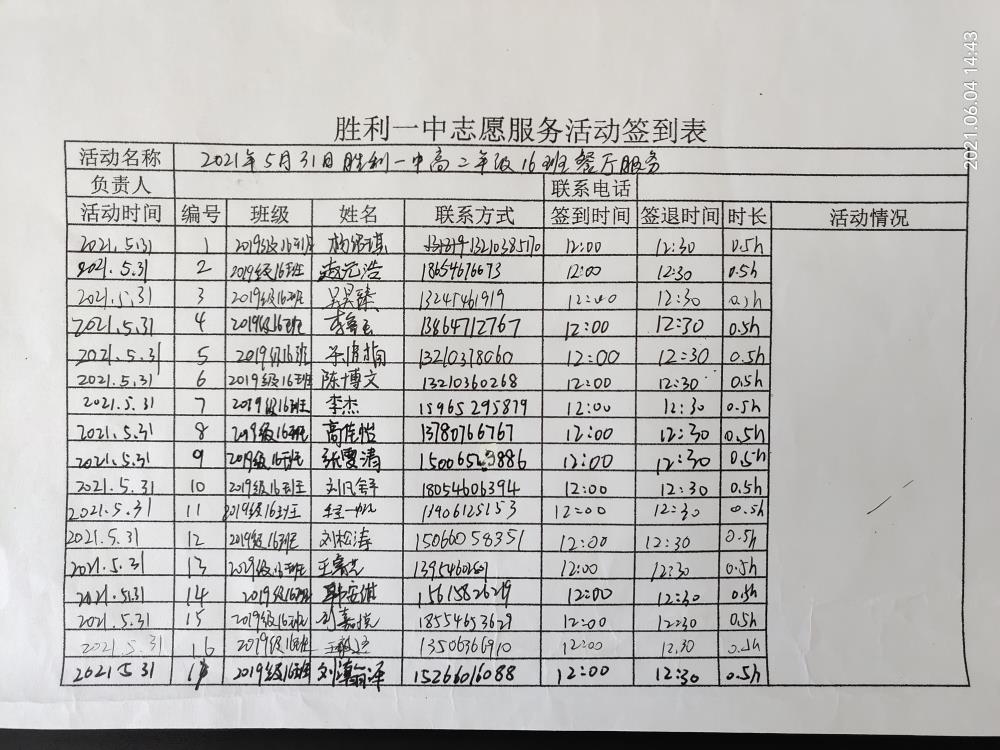 2021.06.04 14:43
胜利一中志愿服务活动签到表
活动名称 2021年5月31日胜利一中高二年级16班餐厅服务
负责人 联系电话
活动时间 编号 班级 姓名 联系方式 签到时间 签退时间 时长 活动情况
2021.5.31 1 2019级16班 13210385170 12:00 12:30 0.5h
2021.5.31 2 2019级16班 赵元浩 18654676673 12:00 12:30 0.5h
2021.5.31 3 2019级16班 吴昊臻 13245461919 12:00 12:30 0.5h
2021.5.31 4 2019级16班 13864712767 12:00 12:30 0.5h
2021.5.31 5 2019级16班 13210378060 12:00 12:30 0.5h
2021.5.31 6 2019级16班 陈博文 13210360268 12:00 12:30 0.5h
2021.5.31 7 2019级16班 李杰 15965295879 12:00 12:30 0.5h
2021.5.31 8 2019级16班 高佳怡 13780766767 12:00 12:30 0.5h
2021.5.31 9 2019级16班 张雯清 12:00 12:30 0.5h
2021.5.31 10 2019级16班 18054606394 12:00 12:30 0.5h
2021.5.31 11 2019级16班 12:00 12:30 0.5h
2021.5.31 12 2019级16班 刘松涛 15066058351 12:00 12:30 0.5h
2021.5.31 13 2019级16班 12:00 12:30 0.5h
2021.5.31 14 2019级16班 15615826219 12:00 12:30 0.5h
2021.5.31 15 2019级16班 18554653629 12:00 12:30 0.5h
2021.5.31 16 2019级16班 13506366910 12:00 12:30 0.5h
2021.5.31 2019级16班 刘瀚泽 15266016088 12:00 12:30 0.5h